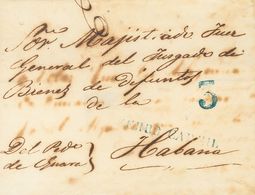 Sor. Majistrado Juez
General del Juzgado de
Bienes de Difuntos
de la
5
Habana
Del Pedo
de Guara